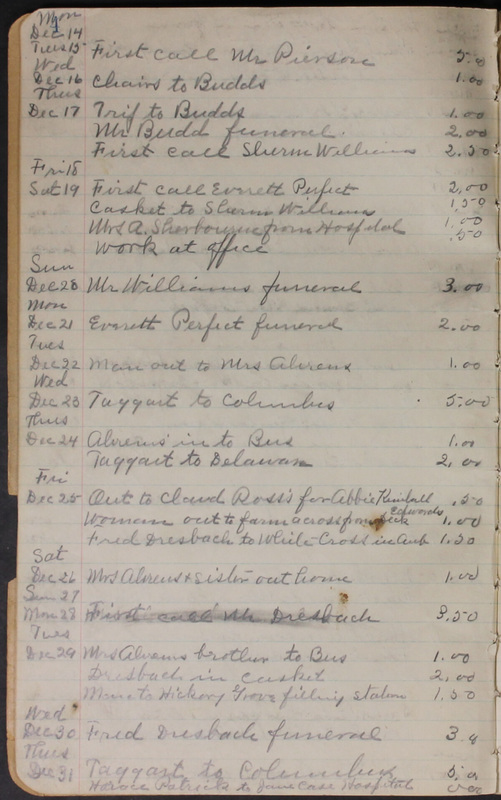 Mon
Dec 14
Tues 15 First call Mr Pierson 5.0
Wed
Dec 16 Chairs to Budds 1.00
Thus
Dec 17 Trip to Budds 1.00
Mr Budd funeral. 2.00
First call Sherm Williams 2.50
Fri 18
Sat 19 First call Everett Perfect 2,00
Casket to Sherm Williams 1,50
Mrs A. Sherbourne from Hospital 1.00
Work at office .50
Sun
Dec 20 Mr Williams funeral 3.00
Mon
Dec 21 Everett Perfect funeral 2.00
Tues
Dec 22 Man out to Mrs Ahrens 1.00
Wed
Dec 23 Taggart to Columbus 5.00
Thus
Dec 24 Ahrens' in to Bus 1.00
Taggart to Delawan 2,00
Fri
Dec 25 Out to Claud Ross's for Abbie Kimball .50
Edwards
Womam out to farm across from 1,00
Fred Dresbach to White Cross in Amb 1.50
Sat
Dec 26 Mrs Ahrens & sister out home 1.00
Sun 27
Mon 28 First call Mr Dresbach 3.50
Tues
Dec 29 Mrs Ahrens brother to Bus 1.00
Dresbach in casket 2,00
Man to Hickory Grove filling station 1.50
Wed
Dec 30 Fred Dresbach funeral 3.
Thus
Dec 31 Taggart to Columbus 5.
Horace Patrick to Jane Case Hospital